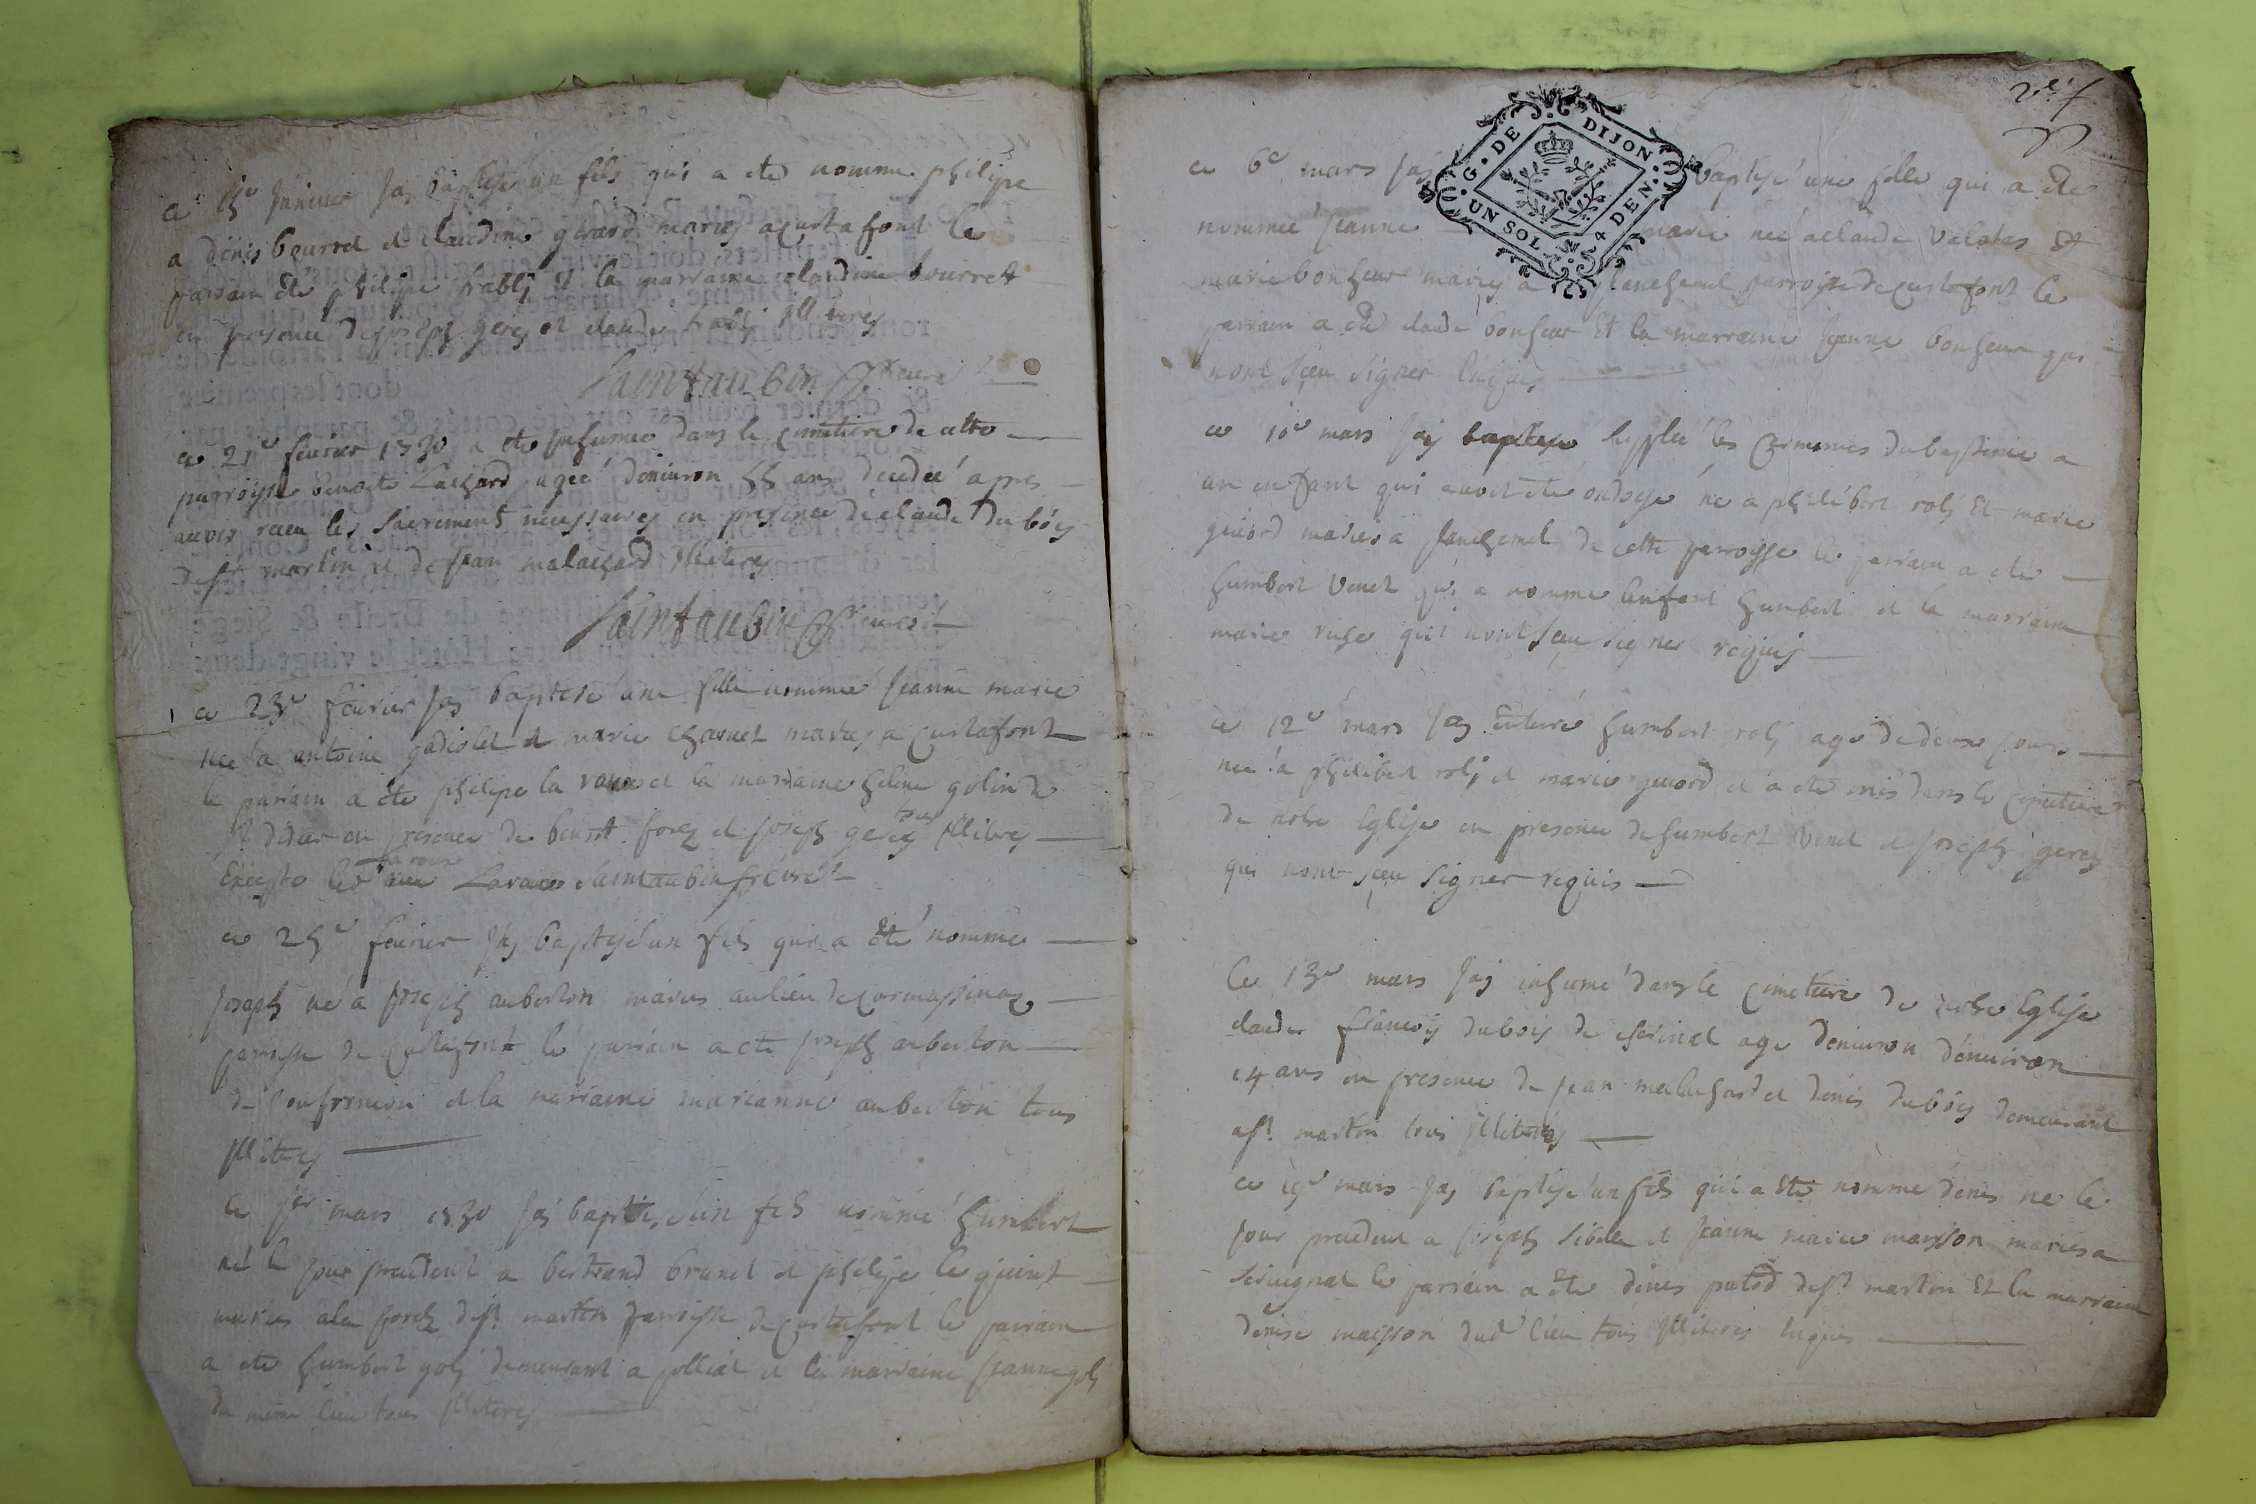 ce 15e Janvier Jay baptisé un fils qui a eté nommé philipe
a denis bourret et claudine gerard mariés a custafont le
parrain eté philipe frabij et la marraine claudine bourret
en presence de joseph gerez et claude frabij Illiteres
Saintaubin curé
ce 21e fevrier 1730 a eté Inhumée dans le cimetiere de cette
parroisse benoite Lachard agée denviron 55 ans decedée apres
avoir receu les Sacrements necessaires en presence de claude Dubois
de st martin et de jean malachard Illiteres
Saintaubin curé
ce 23e fevrier Jay baptisé une fille nommée Jeanne marie
née a antoine gadiolet et marie charnet mariés a custafont
le parrain a eté philipe la raux et la marraine heleine golin de
st didier en presence de benoit forez et joseph gerez tous Illiteres
Excepte led la roux Saintaubin curé
ce 25e fevrier Jay baptisé un fils qui a eté nommé
Joseph né a joseph auberton mariés au lieu de cormassinoz
parroisse de custafont le parrain a eté joseph auberton
de confrancon et la marraine marianne auberton tous
Illiteres
Ce 1er mars 1730 Jay baptisé un fils nommé humbert
né le jour precedent a bertrand brunet et philipe le guint
mariés a la forez de st martin parroisse de custafont le parrain
a eté humbert goly demeurant a polliat et la marraine Jeanne goly
du même lieu tous Illiteres
2e
G. DE DIJON
UN SOL 4 DEN.
ce 6e mars Jay baptisé une fille qui a eté
nommée Jeanne marie née a claude Valotes Et
marie bonheur mariés a planchemel parroisse de custafont le
parrain a eté claude bonheur Et la marraine Jeanne bonheur qui
nont Sceu Signer Enquis
ce 10e mars Jay baptise Supplée les ceremonies du baptesme a
un enfant qui avoit eté ondoyé né a philibert roly Et marie
guiord mariés a planchemel de cette parroisse le parrain a eté
humbert Venet qui a nommé lenfant humbert et la marraine
marie ruse qui nont Sceu signer requis
ce 12e mars Jay enterré humbert roly agé de deux jours
né a philibert roly et marie guiord et a eté mis dans le cimetiere
de notre Eglise en presence de humbert Venet et joseph gerez
qui nont Sceu Signer requis
Ce 13e mars Jay inhumé dans le cimetiere de notre Eglise
claude francois dubois de servinet agé denviron denviron
14 ans en presence de jean malachard et denis dubois demeurant
a st martin tous Illiteres
ce 19e mars Jay baptisé un fils qui a eté nommé denis né le
jour precedent a joseph Sibelle et jeanne marie maisson mariés a
Servignat le parrain a eté denis putod de st martin Et la marraine
denise maisson dud lieu tous Illiteres Enquis